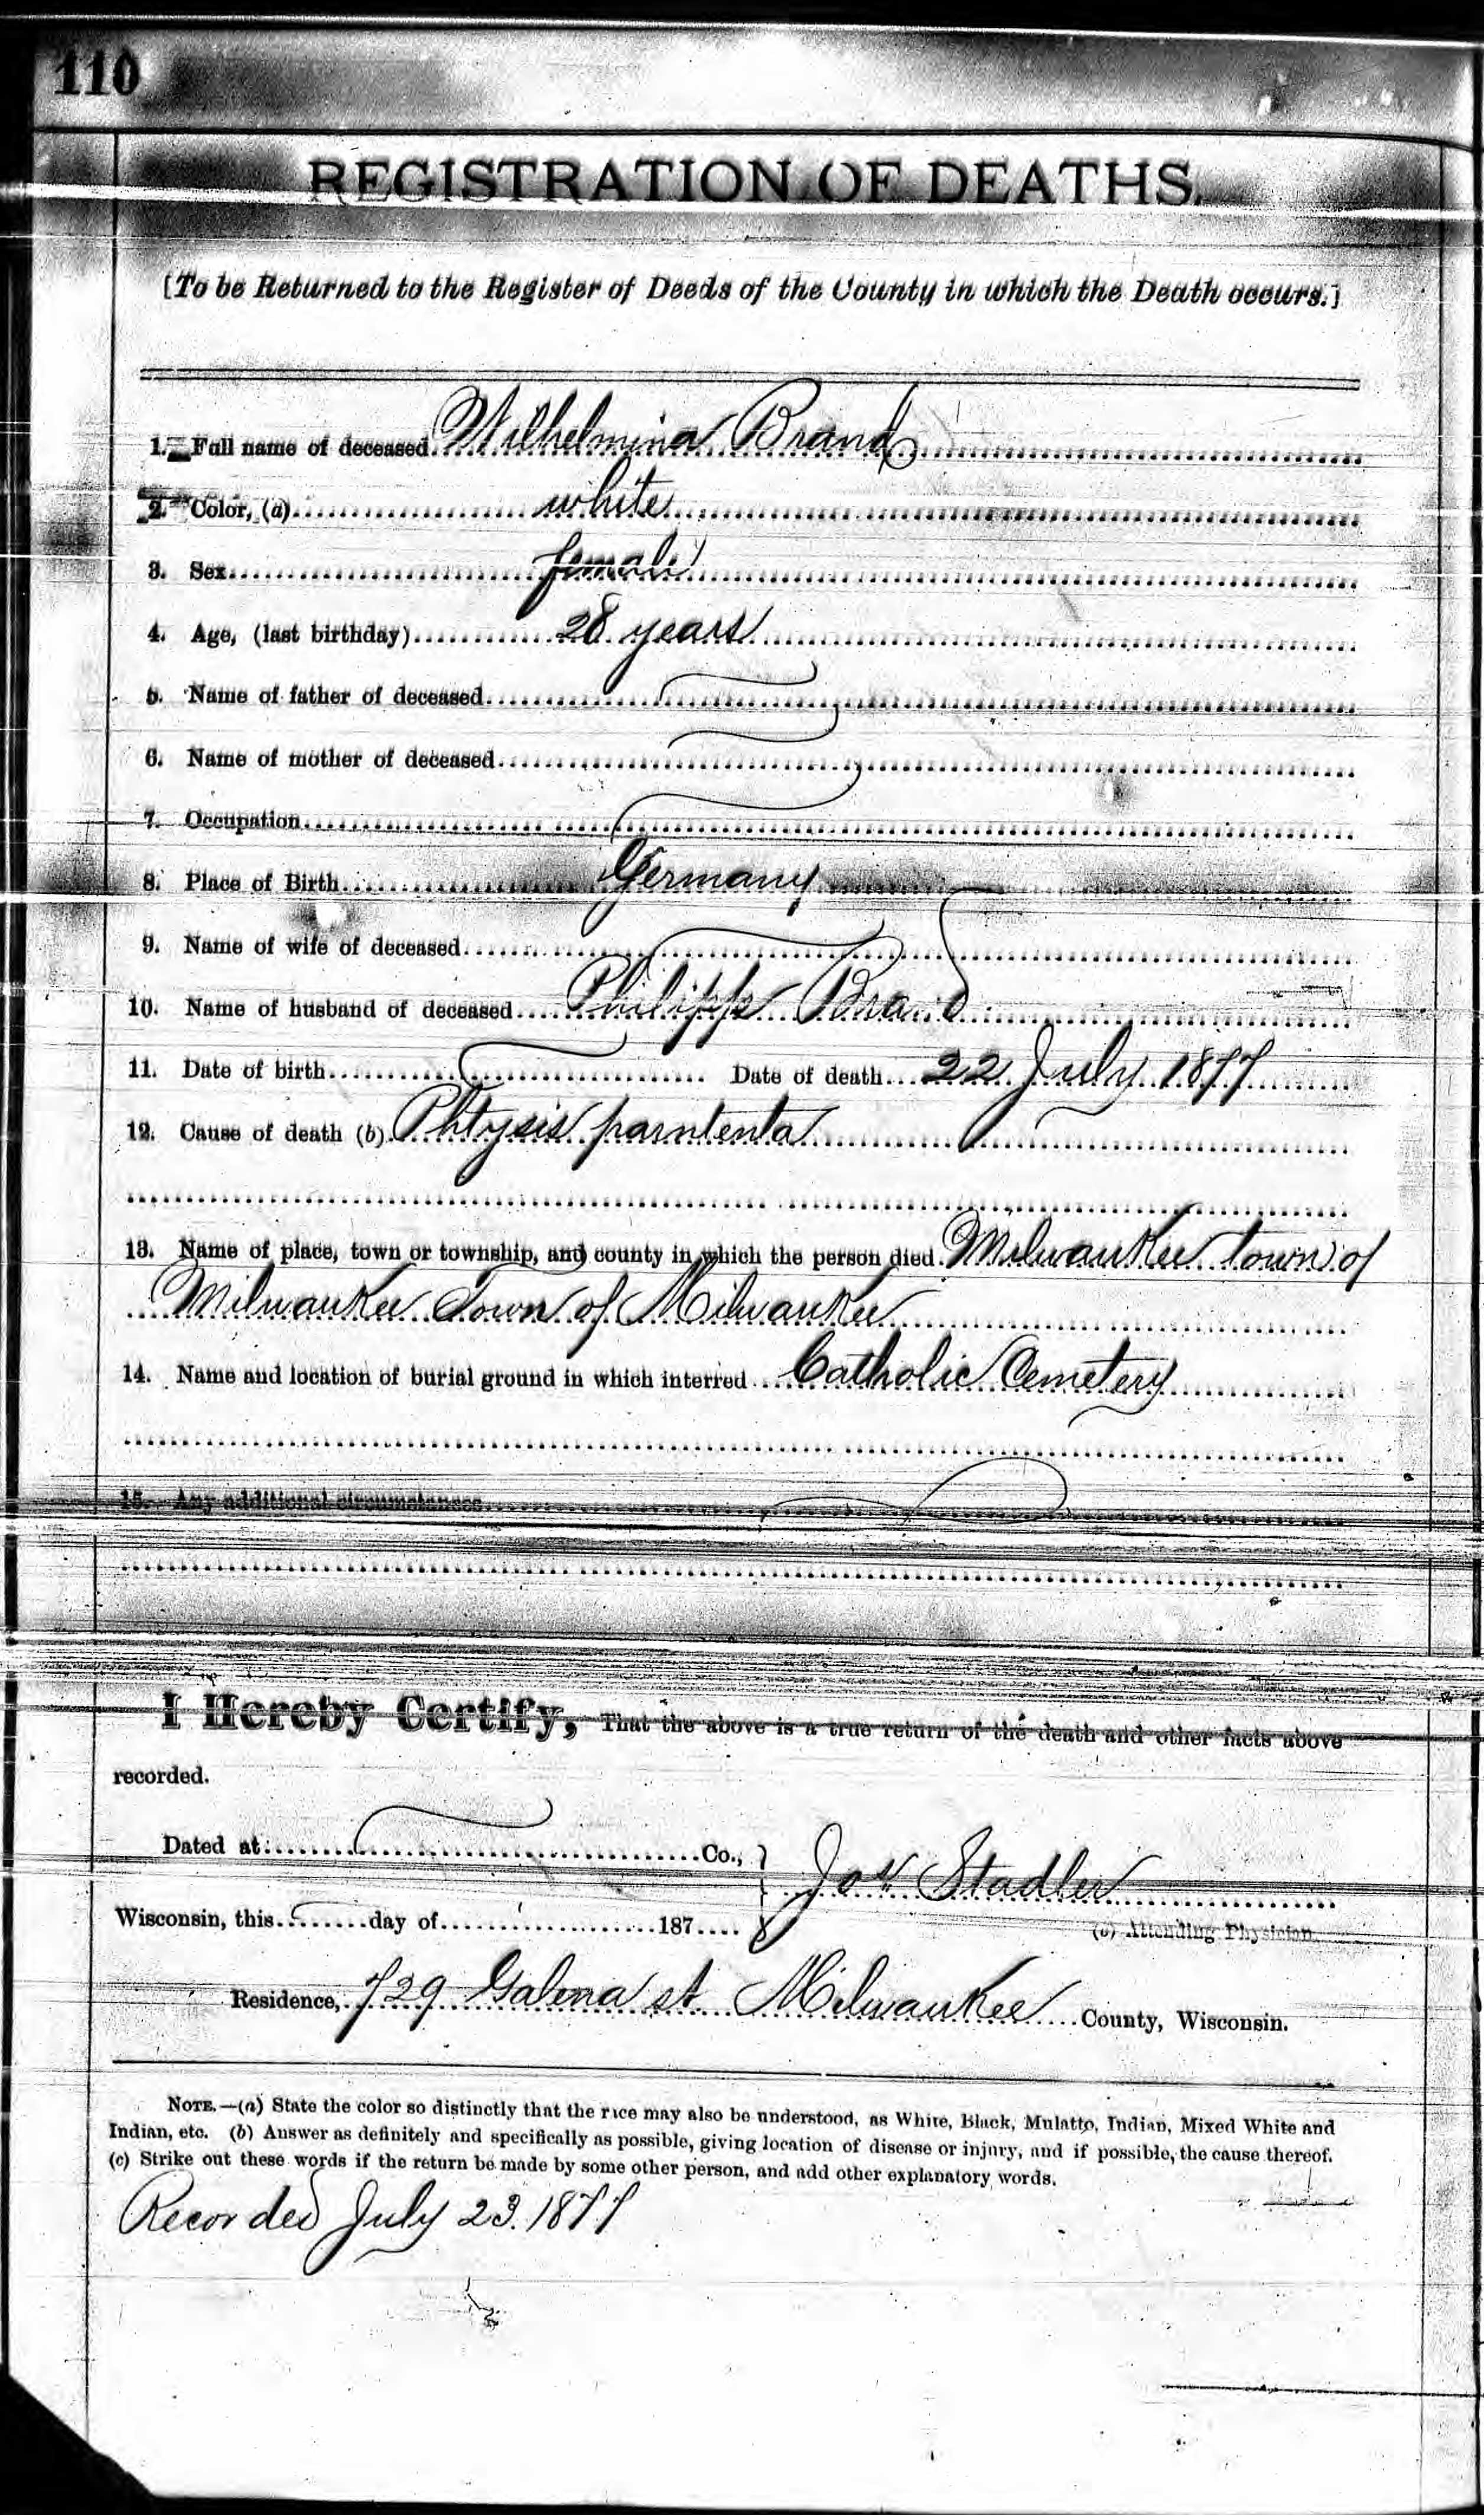 110
REGISTRATION OF DEATHS.
[To be Returned to the Register of Deeds of the County in which the Death occurs.]
1. Full name of deceased Wilhelmina Brand
2. Color, (a) white
3. Sex female
4. Age, (last birthday) 28 years
5. Name of father of deceased
6. Name of mother of deceased
7. Occupation
8. Place of Birth Germany
9. Name of wife of deceased
10. Name of husband of deceased Philipp Brand
11. Date of birth Date of death 22 July 1877
12. Cause of death (b) Phtysis
13. Name of place, town or township, and county in which the person died Milwaukee town of
Milwaukee Town of Milwaukee
14. Name and location of burial ground in which interred Catholic Cemetery
15. Any additional circumstances
I Hereby Certify, That the above is a true return of the death and other facts above
recorded.
Dated at: Co., }
Stadler
Wisconsin, this day of 187
(c) Attending Physician.
Residence, 729 Galena st Milwaukee County, Wisconsin.
NOTE.—(a) State the color so distinctly that the race may also be understood, as White, Black, Mulatto, Indian, Mixed White and
Indian, etc. (b) Answer as definitely and specifically as possible, giving location of disease or injury, and if possible, the cause thereof.
(c) Strike out these words if the return be made by some other person, and add other explanatory words.
Recorded July 23. 1877